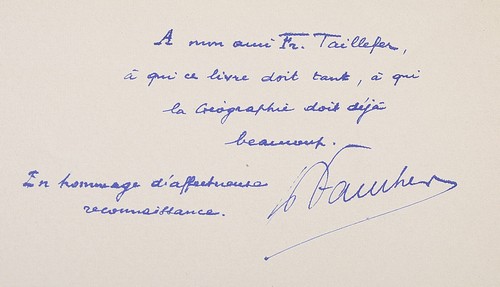 A mon ami Fr. Taillefer,
à qui ce livre doit tant, à qui
la Géographie doit déjà
beaucoup.
En hommage d'affectueuse
reconnaissance.
D Faucher